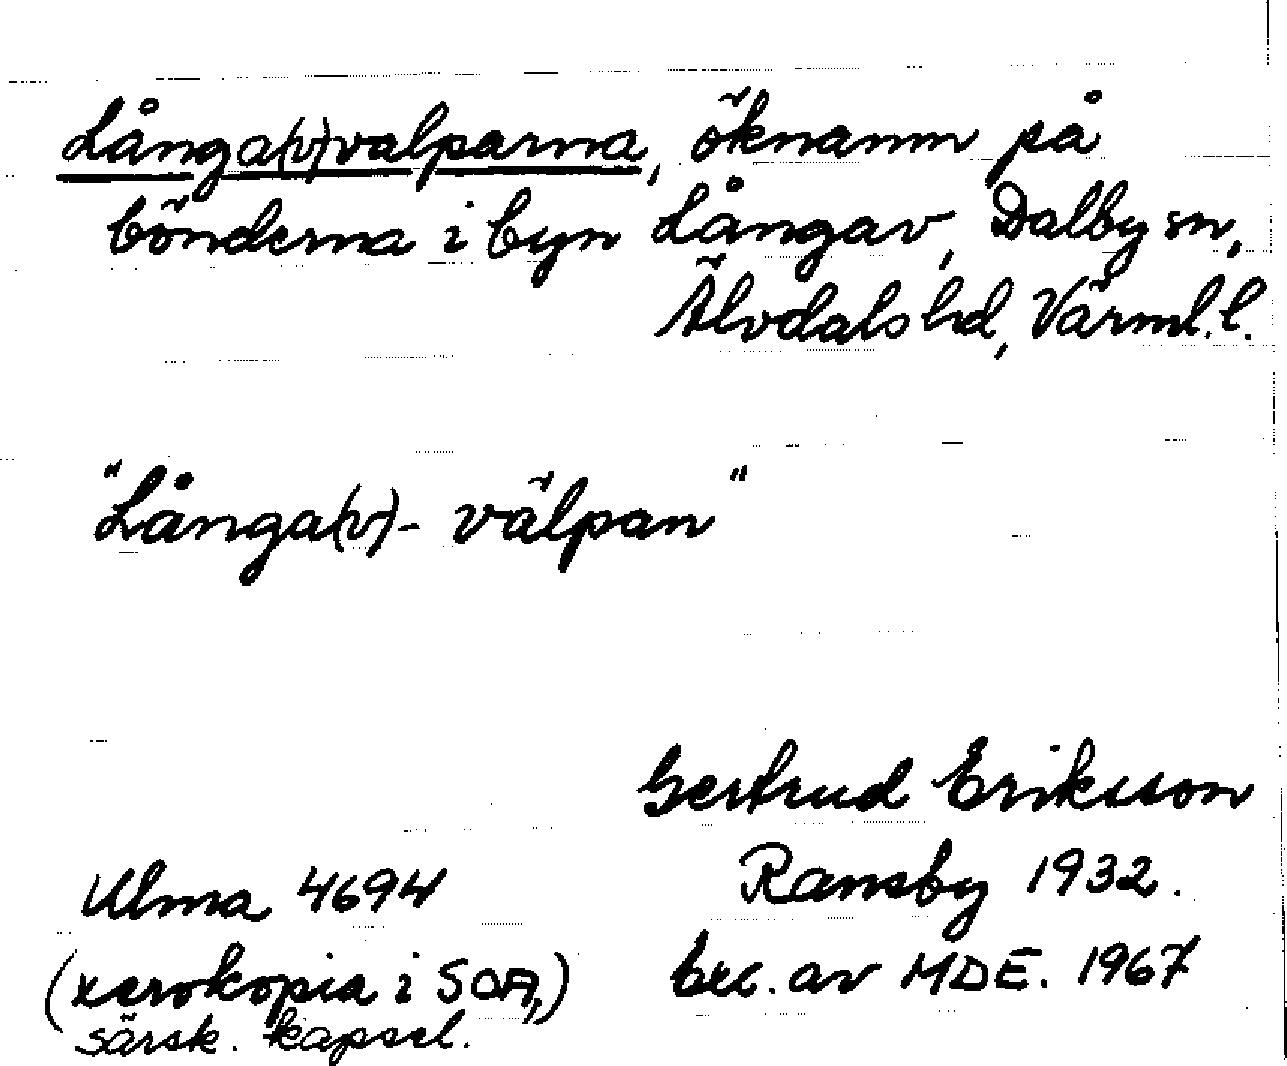 Långa(v)valparna, öknamn på
bönderna i byn Långav, Dalby sn,
Älvdals hd, Värml. l.
"Långa(v)- välpan"
Gertrud Eriksson
Ulma 4694 Ransby 1932.
(xerokopia i SOA,) exc. av MDE. 1967
särsk. kapsel.